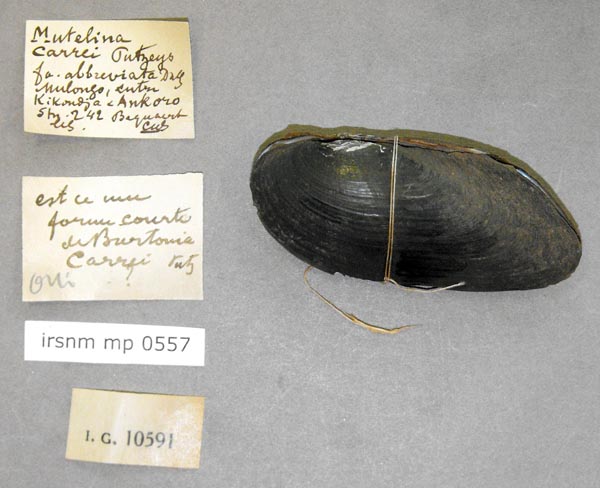 Mutelina
Carrei Putzeys
fa. abbreviata Dtz
Mulongo, entre
Kikondja & Ankoro
Stn. 242 Bequaert
leg.
est ce une
forme courte
de Burtonia
Carrei Putz
?
Oui
irsnm mp 0557
I. G. 10591